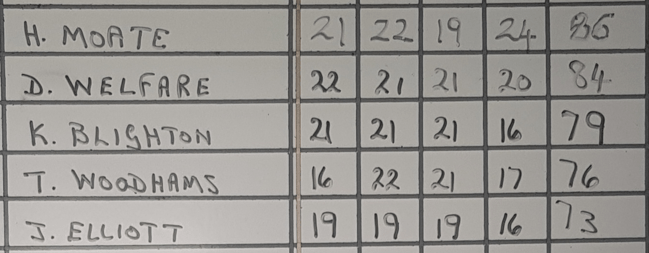 H. MOATE 21 22 19 24 86
D. WELFARE 22 21 21 20 84
K. BLIGHTON 21 21 21 16 79
T. WOODHAMS 16 22 21 17 76
J. ELLIOTT 19 19 19 16 73